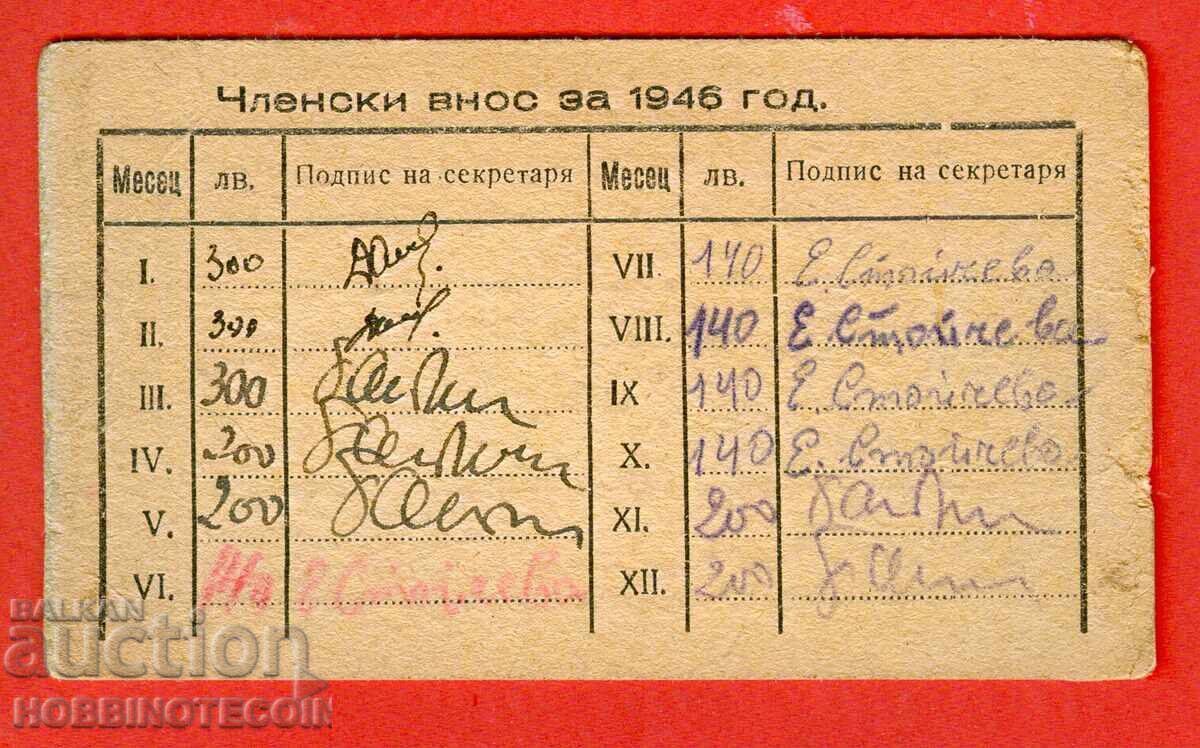 Членски внос за 1946 год.
Месец лв. Подпис на секретаря Месец лв. Подпис на секретаря
I. 300 VII 140 Е. Стойчева
II. 300 VIII. 140 Е Стойчева
III. 300 IX 140 Е. Стойчева
IV. 200 X. 140 Е. Стойчева
V. 200 XI. 200
VI. Е Стойчева XII. 200
BALKAN
auction
HOBBINOTECOIN